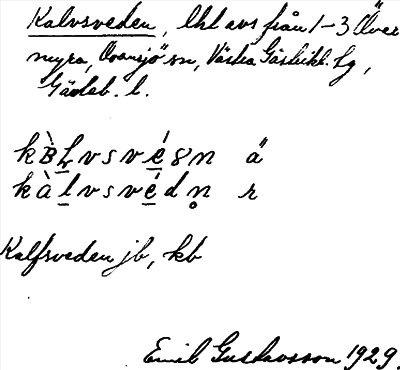 Kalvsveden, lht avs från 1-3 Över
myra, Ovansjö sn, Västra Gästrikl. hg,
Gävleb. l.
kB̀ḷvsvé̱8n ä
kàḻvsvé̱dn̥ r
Kalfsveden jb, kb
Emil Gustavsson 1929.